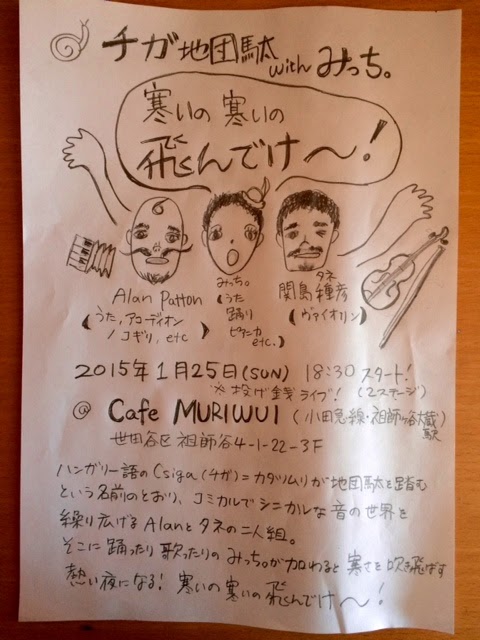 チガ地団駄 with みっち。
寒いの 寒いの
飛んでけ〜！
Alan Patton
(うた,アコーディオン
ノコギリ, etc)
みっち。
(うた
踊り
ピアニカ
etc.)
タネ
関島種彦
(ヴァイオリン)
2015年1月25日(SUN) 18:30 スタート!
※投げ銭ライブ! (2ステージ)
@ Cafe MURIWUI (小田急線・祖師ヶ谷大蔵駅)
世田谷区祖師谷4-1-22-3F
ハンガリー語のCsiga(チガ)=カタツムリが地団駄を踏む
という名前のとおり、コミカルでシニカルな音の世界を
繰り広げるAlanとタネの二人組。
そこに踊ったり歌ったりのみっち。が加わると寒さを吹き飛ばす
熱い夜になる! 寒いの寒いの飛んでけ〜!